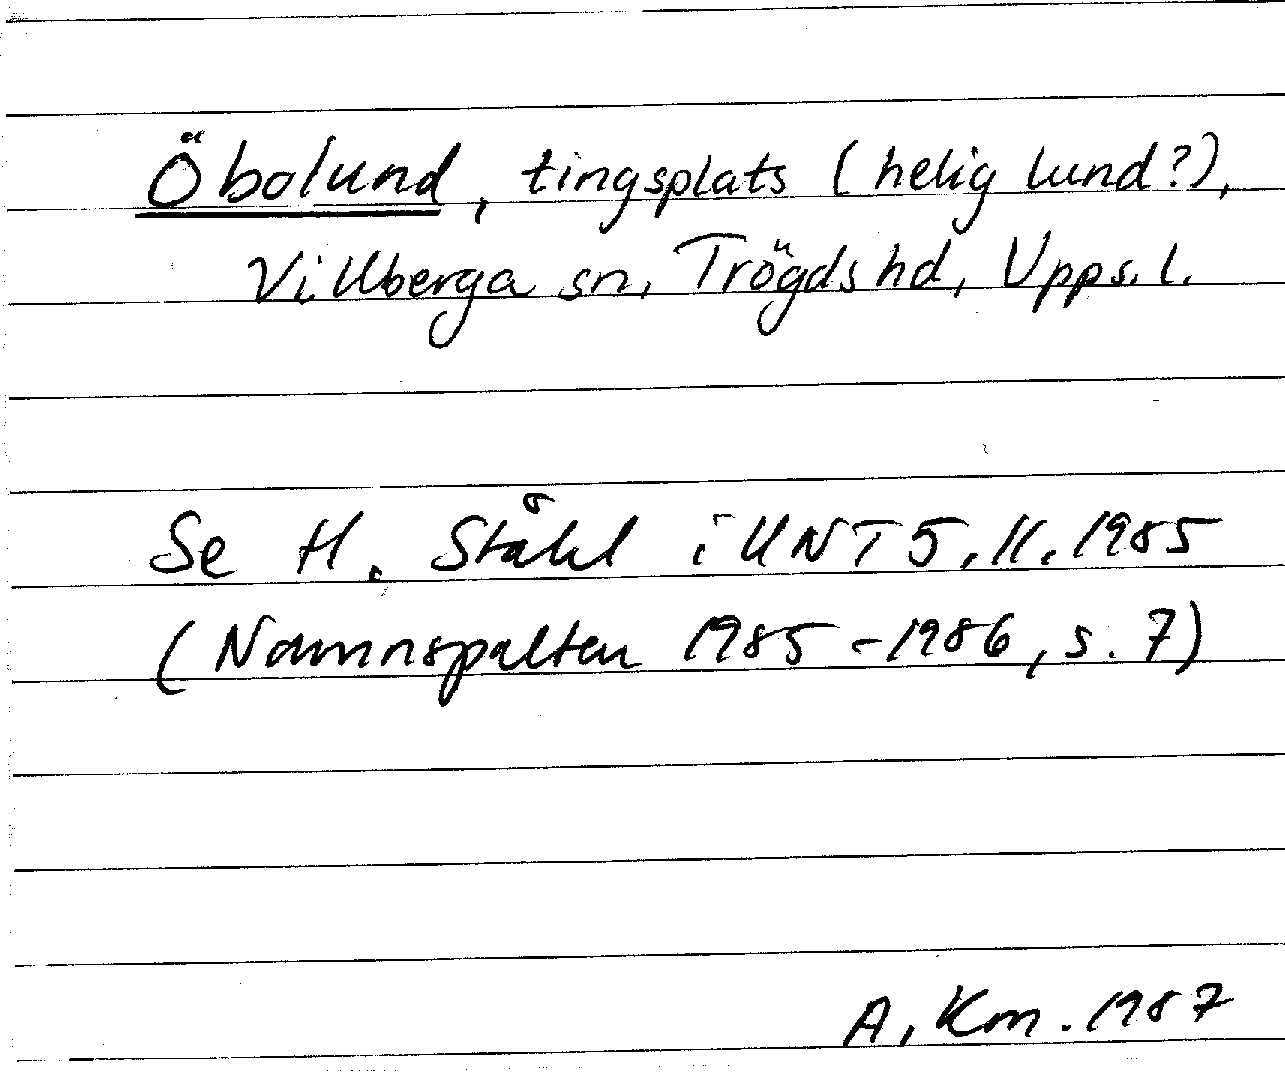 Öbolund, tingsplats (helig lund?),
Villberga sn, Trögds hd, Upps. l.
Se H. Ståhl i UNT 5.11.1985
(Namnspalten 1985-1986, s. 7)
A. Km. 1987